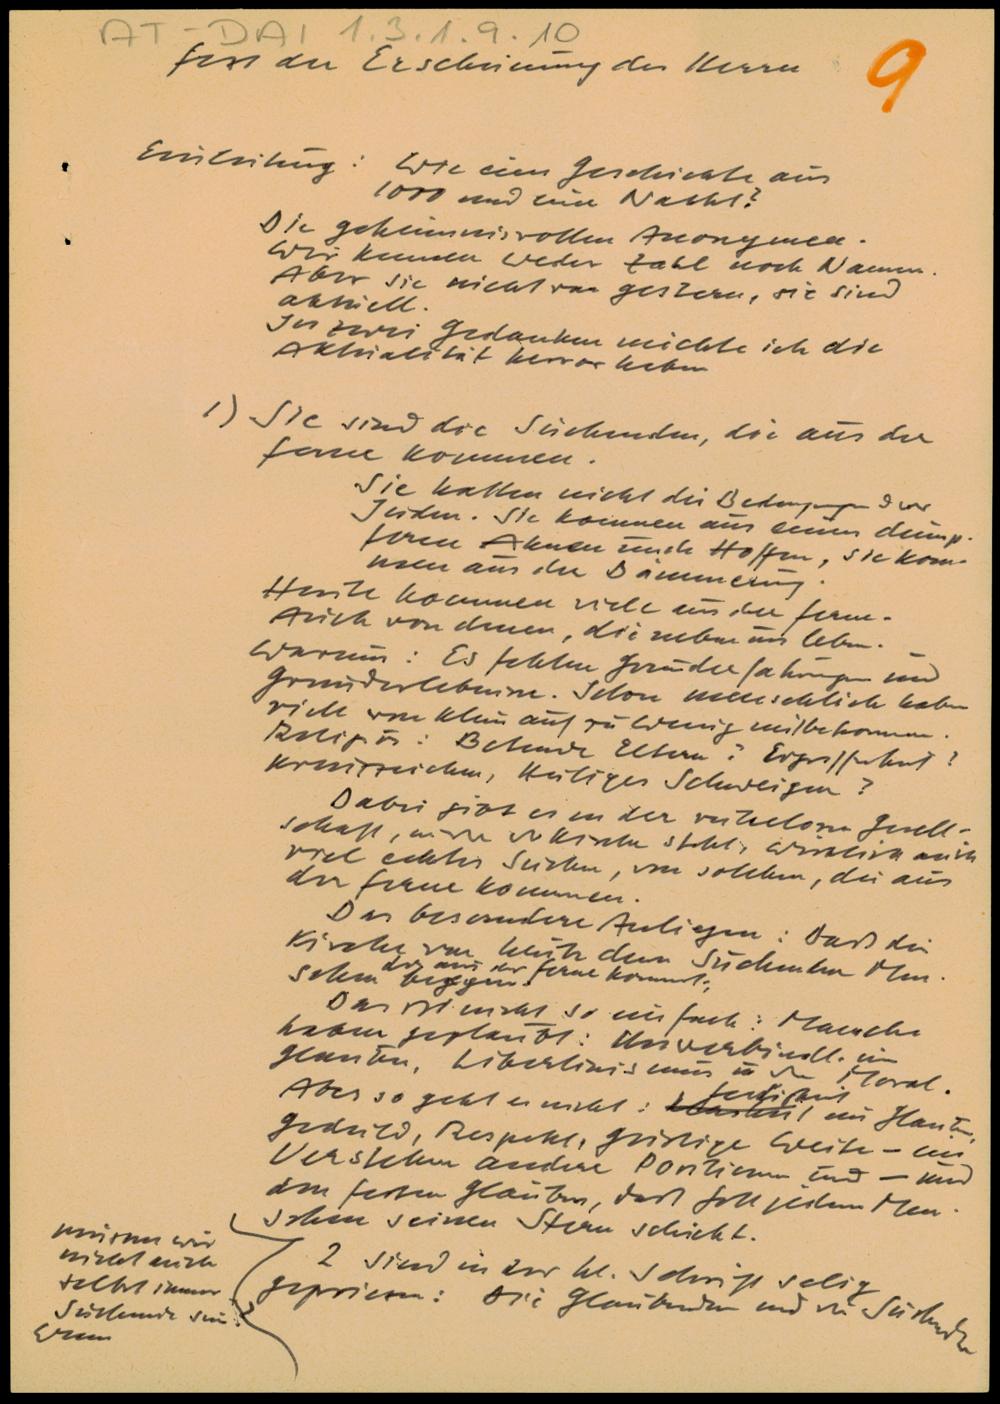 AT-DAI 1.3.1.9.10
Fest der Erscheinung des Herrn
9
Einleitung: Wie eine Geschichte aus
1000 und eine Nacht?
Die geheimnisvollen Anonymen.
Wir kennen weder Zahl noch Namen.
Aber sie nicht von gestern, sie sind
aktuell.
In zwei Gedanken möchte ich die
Aktualität hervorheben
1) Sie sind die Suchenden, die aus der
Ferne kommen.
Sie hatten nicht die Bedingungen der
Juden. Sie kommen aus einem dump-
feren Ahnen und Hoffen, sie kom-
men aus der Dämmerung.
Heute kommen viele aus der Ferne.
Auch von denen, die neben uns leben.
Warum: Es fehlen Grunderfahrungen und
Grunderlebnisse. Schon menschlich haben
viele von klein auf zu wenig mitbekommen.
Religiös: Betende Eltern? Ergriffenheit?
Kreuzzeichen, Heiliges Schweigen?
Dabei gibt es in der Gesell-
schaft, in der die Kirche steht, wirklich auch
viel echtes Suchen, von solchen, die aus
der Ferne kommen.
Das besondere Anliegen: Daß die
Kirche von heute dem Suchenden Men-
schen der aus der Ferne kommt,
Das ist nicht so einfach: Manche
haben geglaubt: Unverbindl. im
Glauben, Libertinismus in der Moral.
Aber so geht es nicht: Festigkeit im Glauben,
Geduld, Respekt, geistige Weite – ein
Verstehen andere Positionen und – und
den festen Glauben, daß Gott jedem Men-
schen seinen Stern schickt.
müssen wir
nicht auch
selbst immer
Suchende sein?
2 sind in der hl. Schrift selig
gepriesen: Die Glaubenden und die Suchenden